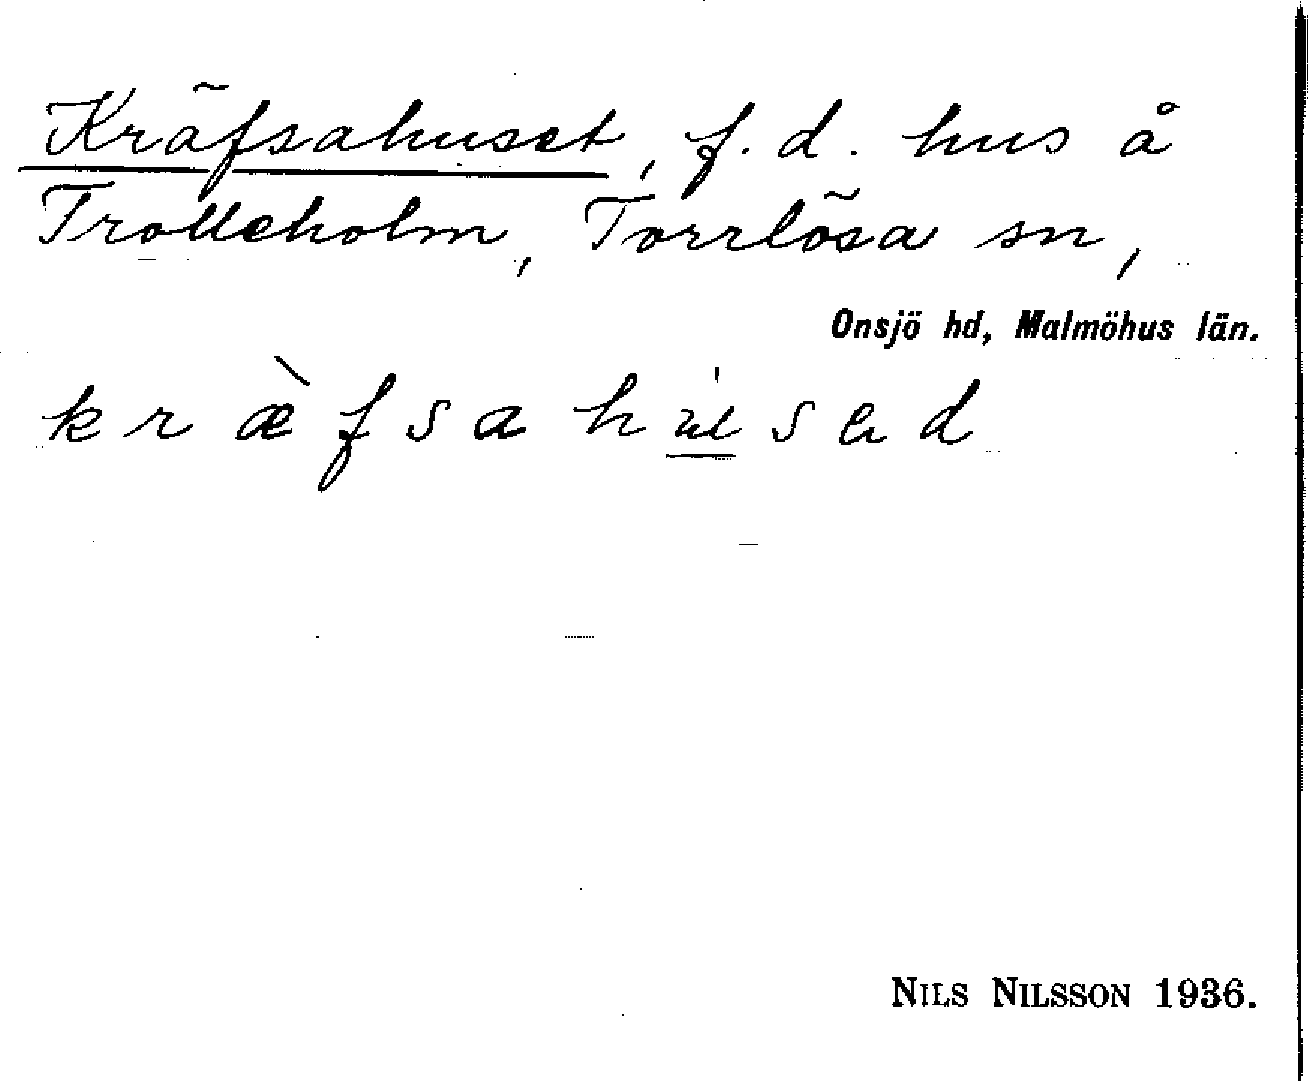 Kräfsahuset, f.d. hus å
Trolleholm, Torrlösa sn,
Onsjö hd, Malmöhus län.
NILS NILSSON 1936.